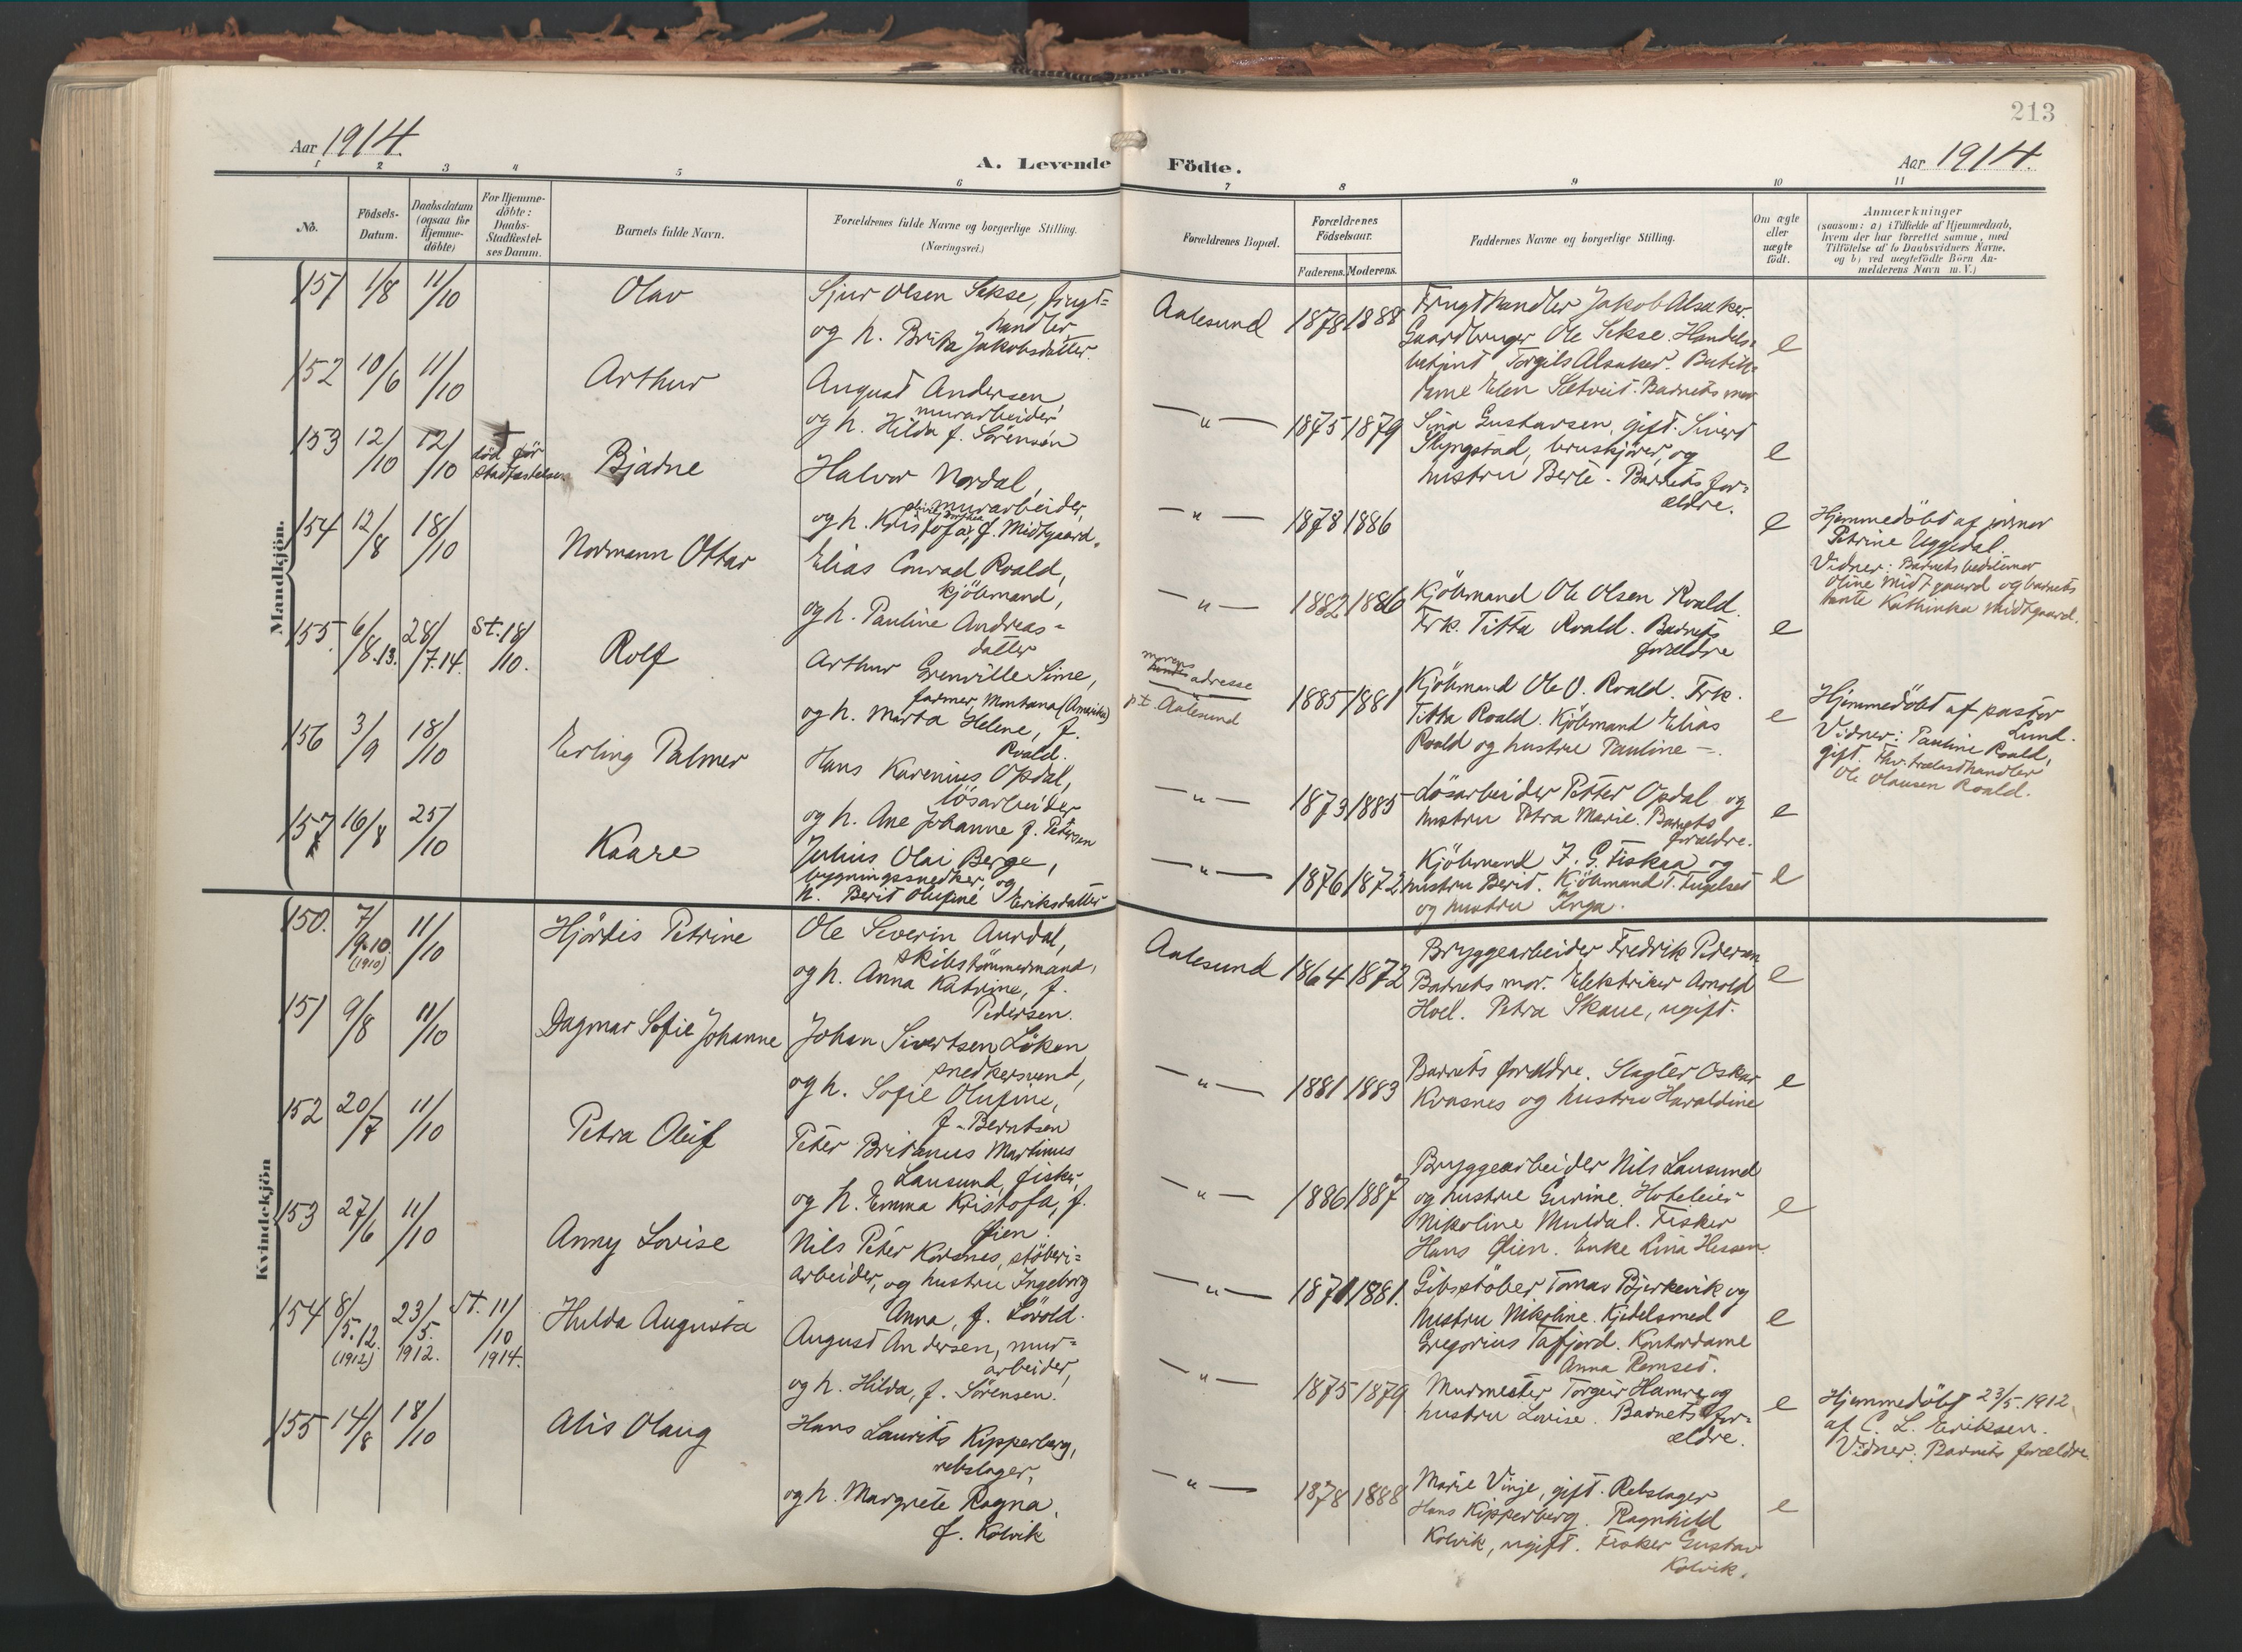 213
Aar 1914.
A. Levende Födte.
Aar 1914.
1 2 3 4 5 6 7 8 9 10 11
No.
Födsels-
Datum.
Daabsdatum
(ogsaa for
Hjemme-
döbte)
For Hjemme-
döbte:
Daabs-
Stadfæstel-
ses Datum.
Barnets fulde Navn.
Forældrenes fulde Navne og borgerlige Stilling.
(Næringsvei.)
Forældrenes Bopæl.
Forældrenes
Födselsaar.
Faderens. Moderens.
Faddernes Navne og borgerlige Stilling.
Om ægte
eller
uægte
födt.
Anmærkninger
(saasom: a) i Tilfælde af Hjemmedaab,
hvem der har forrettet samme, med
Tilföielse af to Daabsvidners Navne,
og b) ved uægtefödte Börn An-
melderens Navn m. V.)
Mandkjön.
151 1/8 11/10 Olav
Sjur Olsen Sekse, frugt=
handler
og h. Brita Jakobsdatter.
Aalesund 1878 1888
Frugthandler Jakob Alsaker.
Gaardbruger Ole Sekse. Handels=
betjent Torgils Alsaker. Butik=
dame Elen Sætveit. Barnets mor
e
152 10/6 11/10 Arthur
August Andersen,
murarbeider
og h. Hilda f. Sörensen
— " — 1875 1879
Sina Gustavsen, gift. Sivert
Slyngstad, bruskjörer, og
hustru Berte. Barnets for=
ældre.
e
153 12/10 12/10
död för
stadfæstelsen
Bjarne
Halvor Nordal,
murarbeider,
og h. Kristofa, f. Midtgaard.
— " — 1878 1886 e
Hjemmedöbt af jormor
Petrine Uggedal.
Vidner: Barnets bedstemor
Oline Midtgaard og barnets
tante Kathinka Midtgaard.
154 12/8 18/10 Normann Ottar
Elias Conrad Roald,
kjöbmand,
og h. Pauline Andreas=
datter
— " — 1882 1886
Kjöbmand Ole Olsen Roald.
Frk. Titta Roald. Barnets
forældre
e
155. 6/8.13. 28/7.14. St. 18/10. Rolf
Arthur Grenville Sime,
farmer, Montana (Amerika)
og h. Marta Helene, f.
Roald.
morens
adresse
p.t. Aalesund
1885 1881
Kjöbmand Ole O. Roald. Frk.
Titta Roald. Kjöbmand Elias
Roald og hustru Pauline —.
e
Hjemmedöbt af pastor
Lund.
Vidner: Pauline Roald,
gift. Fhv. trælasthandler
Ole Olausen Roald.
156 3/9 18/10 Erling Palmer
Hans Karenius Opdal,
lösarbeider
og h. Ane Johanne f. Petersen
— " — 1873 1885
Lösarbeider Petter Opdal og
hustru Petra Marie. Barnets
forældre.
e
157 16/8 25/10 Kaare
Julius Olai Berge,
bygningssnedker, og
h. Berit Olufine Eriksdatter
— " — 1876 1872
Kjöbmand J. G. Fiskaa og
hustru Berit. Kjöbmand T. Fugelset
og hustru Inga.
e
Kvindekjön
150. 7/9.10 (1910) 11/10 Hjördis Petrine
Ole Severin Aurdal,
skibstömmermand,
og h. Anna Katrine, f.
Pedersen.
Aalesund 1864 1872
Bryggearbeider Fredrik Pedersen
Barnets mor. Elektriker Arnold
Hoel. Petra Skaue, ugift.
e
151 9/8 11/10 Dagmar Sofie Johanne
Johan Sivertsen Löken
snedkersvend,
og h. Sofie Olufine,
f. Berntsen
— " — 1881 1883
Barnets forældre. Slagter Oskar
Kvasnes og hustru Haraldine
e
152 20/7 11/10 Petra Oleif
Peter Britanus Martinus
Lausund, fisker,
og h. Emma Kristofa, f.
Öien.
— " — 1886 1887
Bryggearbeider Nils Lausund
og hustru Gurine. Hoteleier
Nikoline Muldal. Fisker
Hans Öien. Enke Lina Hessen.
e
153 27/6 11/10 Anny Lovise
Nils Peter Korsnes, stöberi=
arbeider, og hustru Ingeborg
Anna, f. Lövold.
— " — 1871 1881.
Gibsstöber Tomas Bjerkevik og
hustru Nikoline. Kjedelsmed
Gregorius Tafjord. Kontordame
Anna Remset.
e
154 8/5.12. (1912) 23/5. 1912. St. 11/10 1914. Hulda Augusta
August Andersen, mur=
arbeider,
og h. Hilda, f. Sörensen.
— " — 1875 1879
Murmester Torgeir Hamre og
hustru Lovise. Barnets for=
ældre.
e
Hjemmedöbt 23/5. 1912
af C. L. Eriksen.
Vidner: Barnets forældre
155 14/8 18/10 Alis Olaug
Hans Laurits Kipperberg,
rebslager,
og h. Margrete Ragna,
f. Kolvik
— " — 1878 1888
Marie Vinje, gift. Rebslager
Hans Kipperberg. Ragnhild
Kolvik, ugift. Fisker Gustav
Kolvik.
e